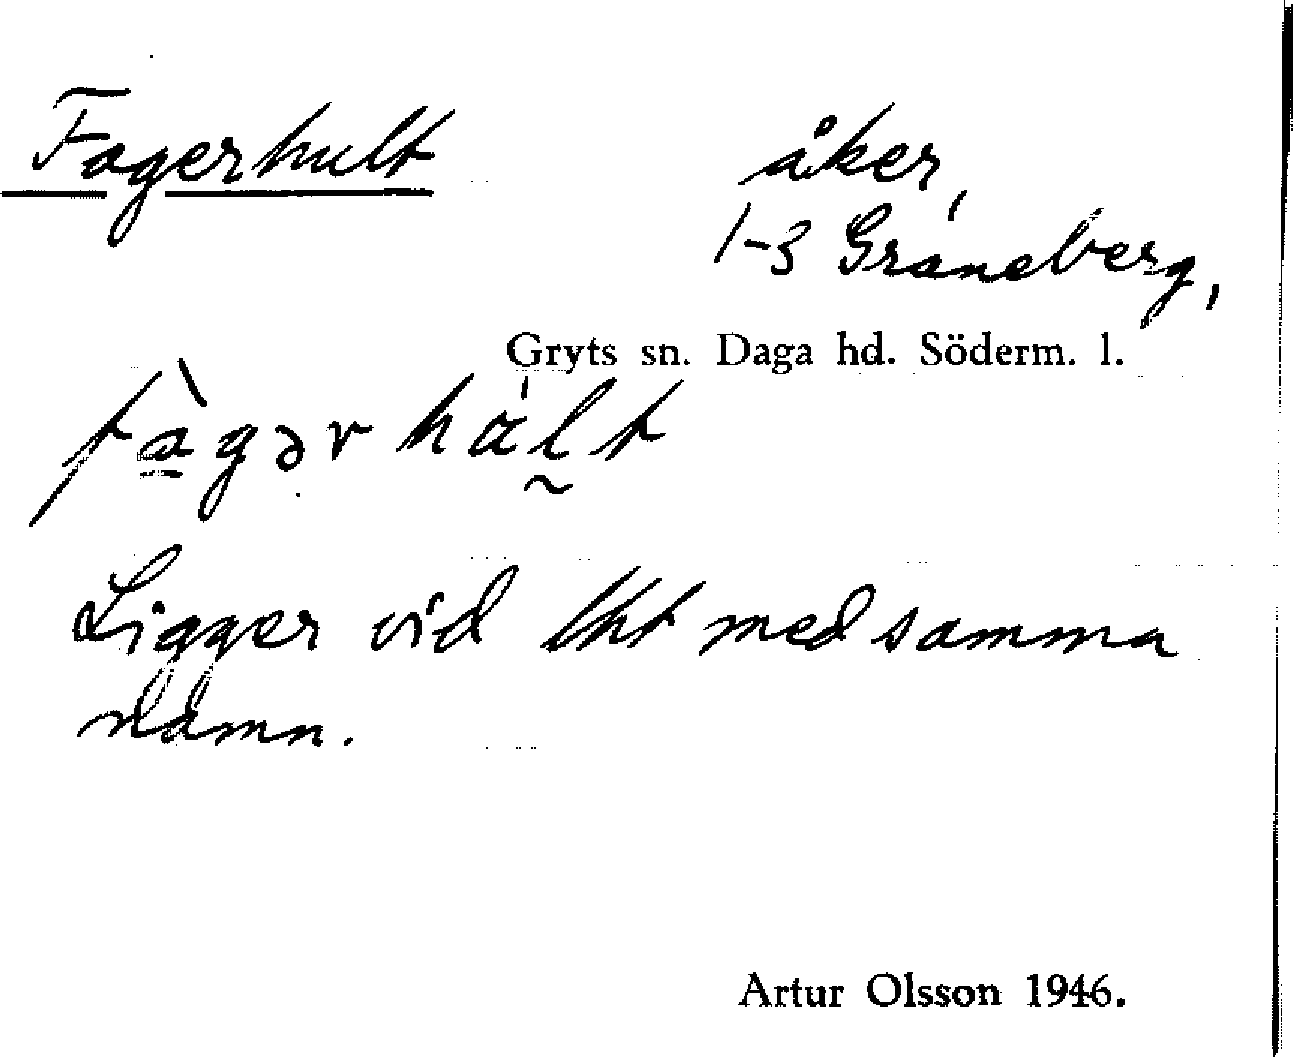 Fagerhult åker,
1-3 Gråneberg,
Gryts sn. Daga hd. Söderm. l.
Ligger vid lht med samma
namn.
Artur Olsson 1946.